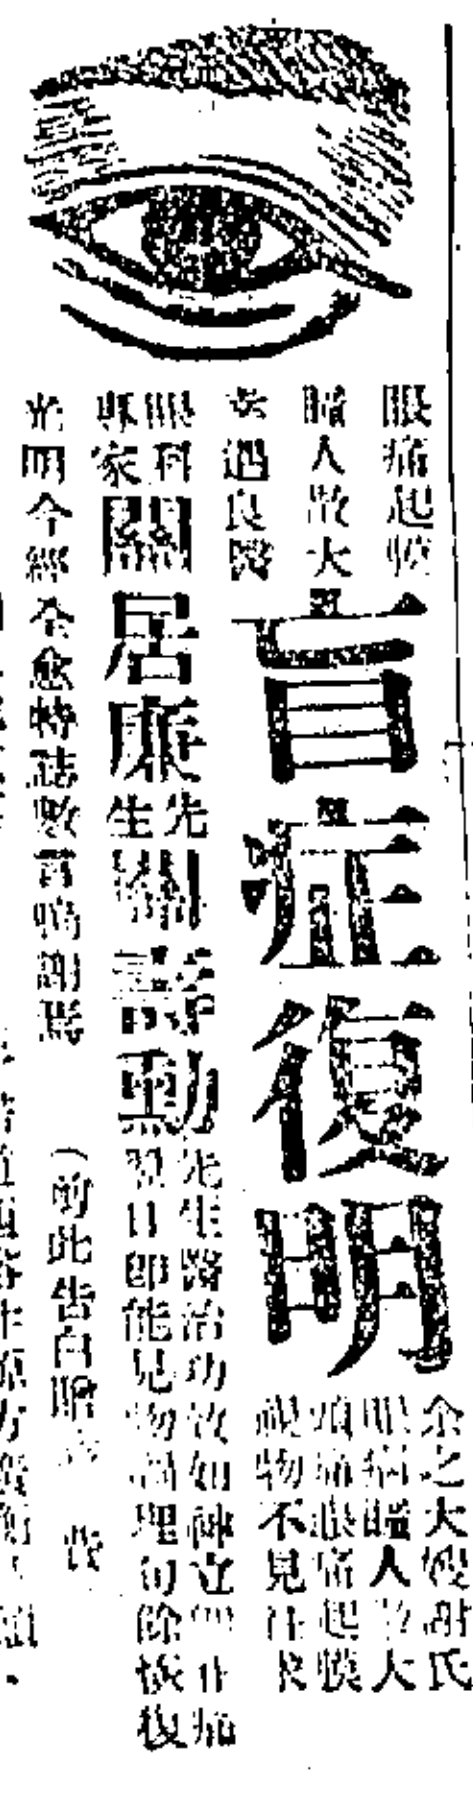 眼痛起膜
瞳人散大
幸遇良醫
盲症復明
余之大嫂謝氏
眼痛瞳人散大
頭痛眼痛起膜
視物不見
眼科專家關居廉先生關壽勳
先生醫治功效如神立即止痛
翌日即能見物調理旬餘恢復
光明今經全愈特誌數言鳴謝焉
(前此告白